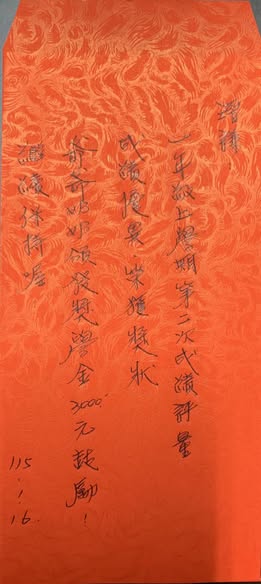 一年級上學期第二次成績評量
成績優異.榮獲獎狀
爺爺奶奶頒發獎學金3,000元鼓勵!
繼續保持喔
115.1.16.